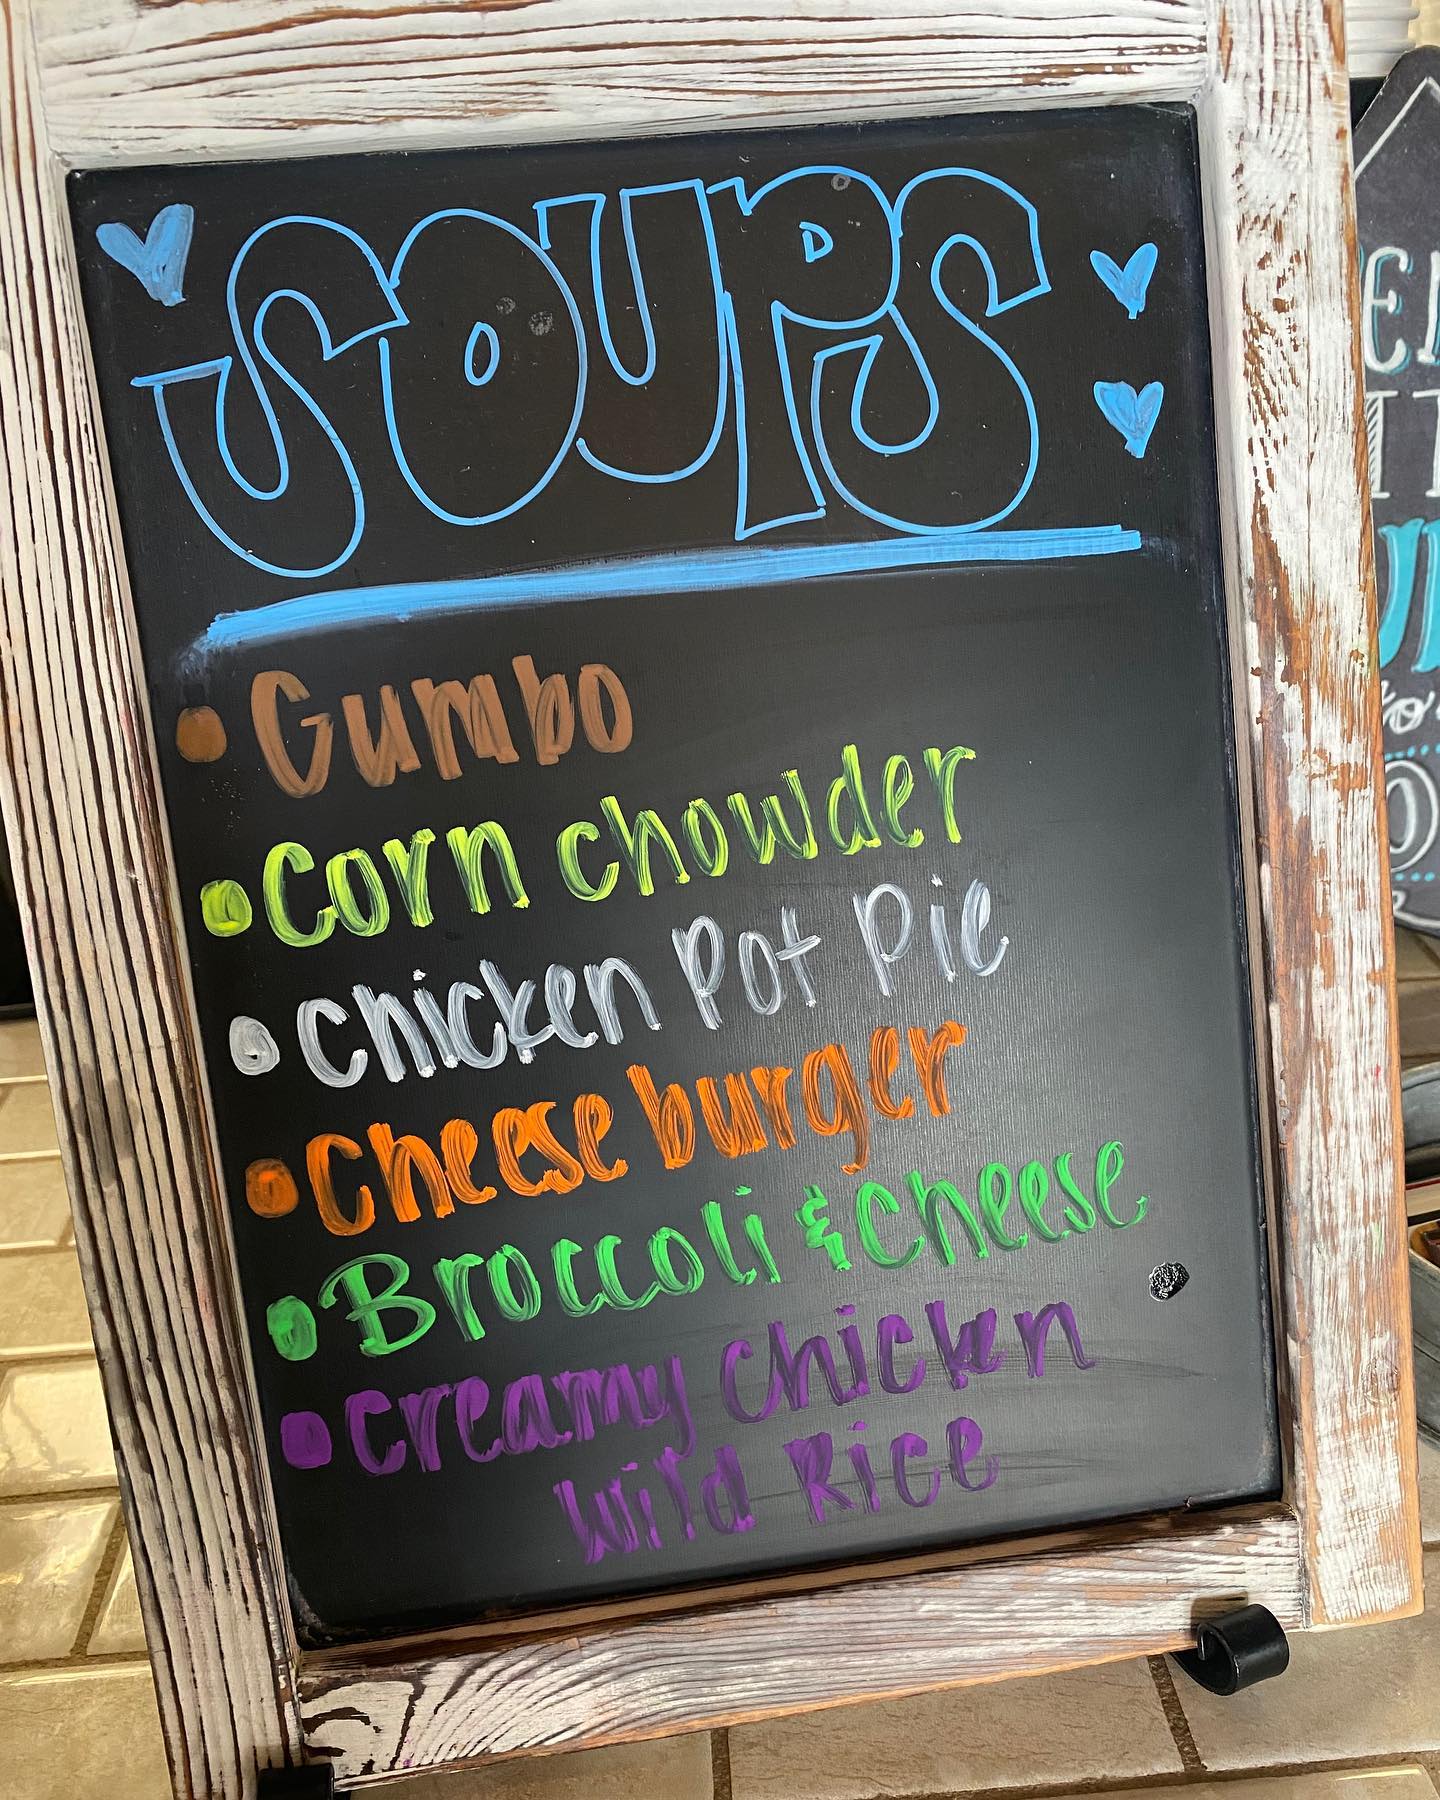 SOUPS
• Gumbo
• Corn chowder
• Chicken Pot Pie
• Cheese burger
• Broccoli & Cheese
• Creamy Chicken
Wild Rice